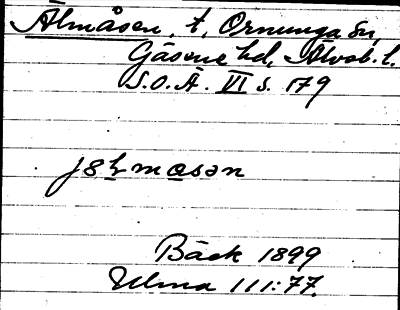 Älmåsen, t, Ornunga sn,
Gäsene hd, Älvsb. l.
S.O.Ä. VI s. 179
Bäck 1899
Ulma 111:77.